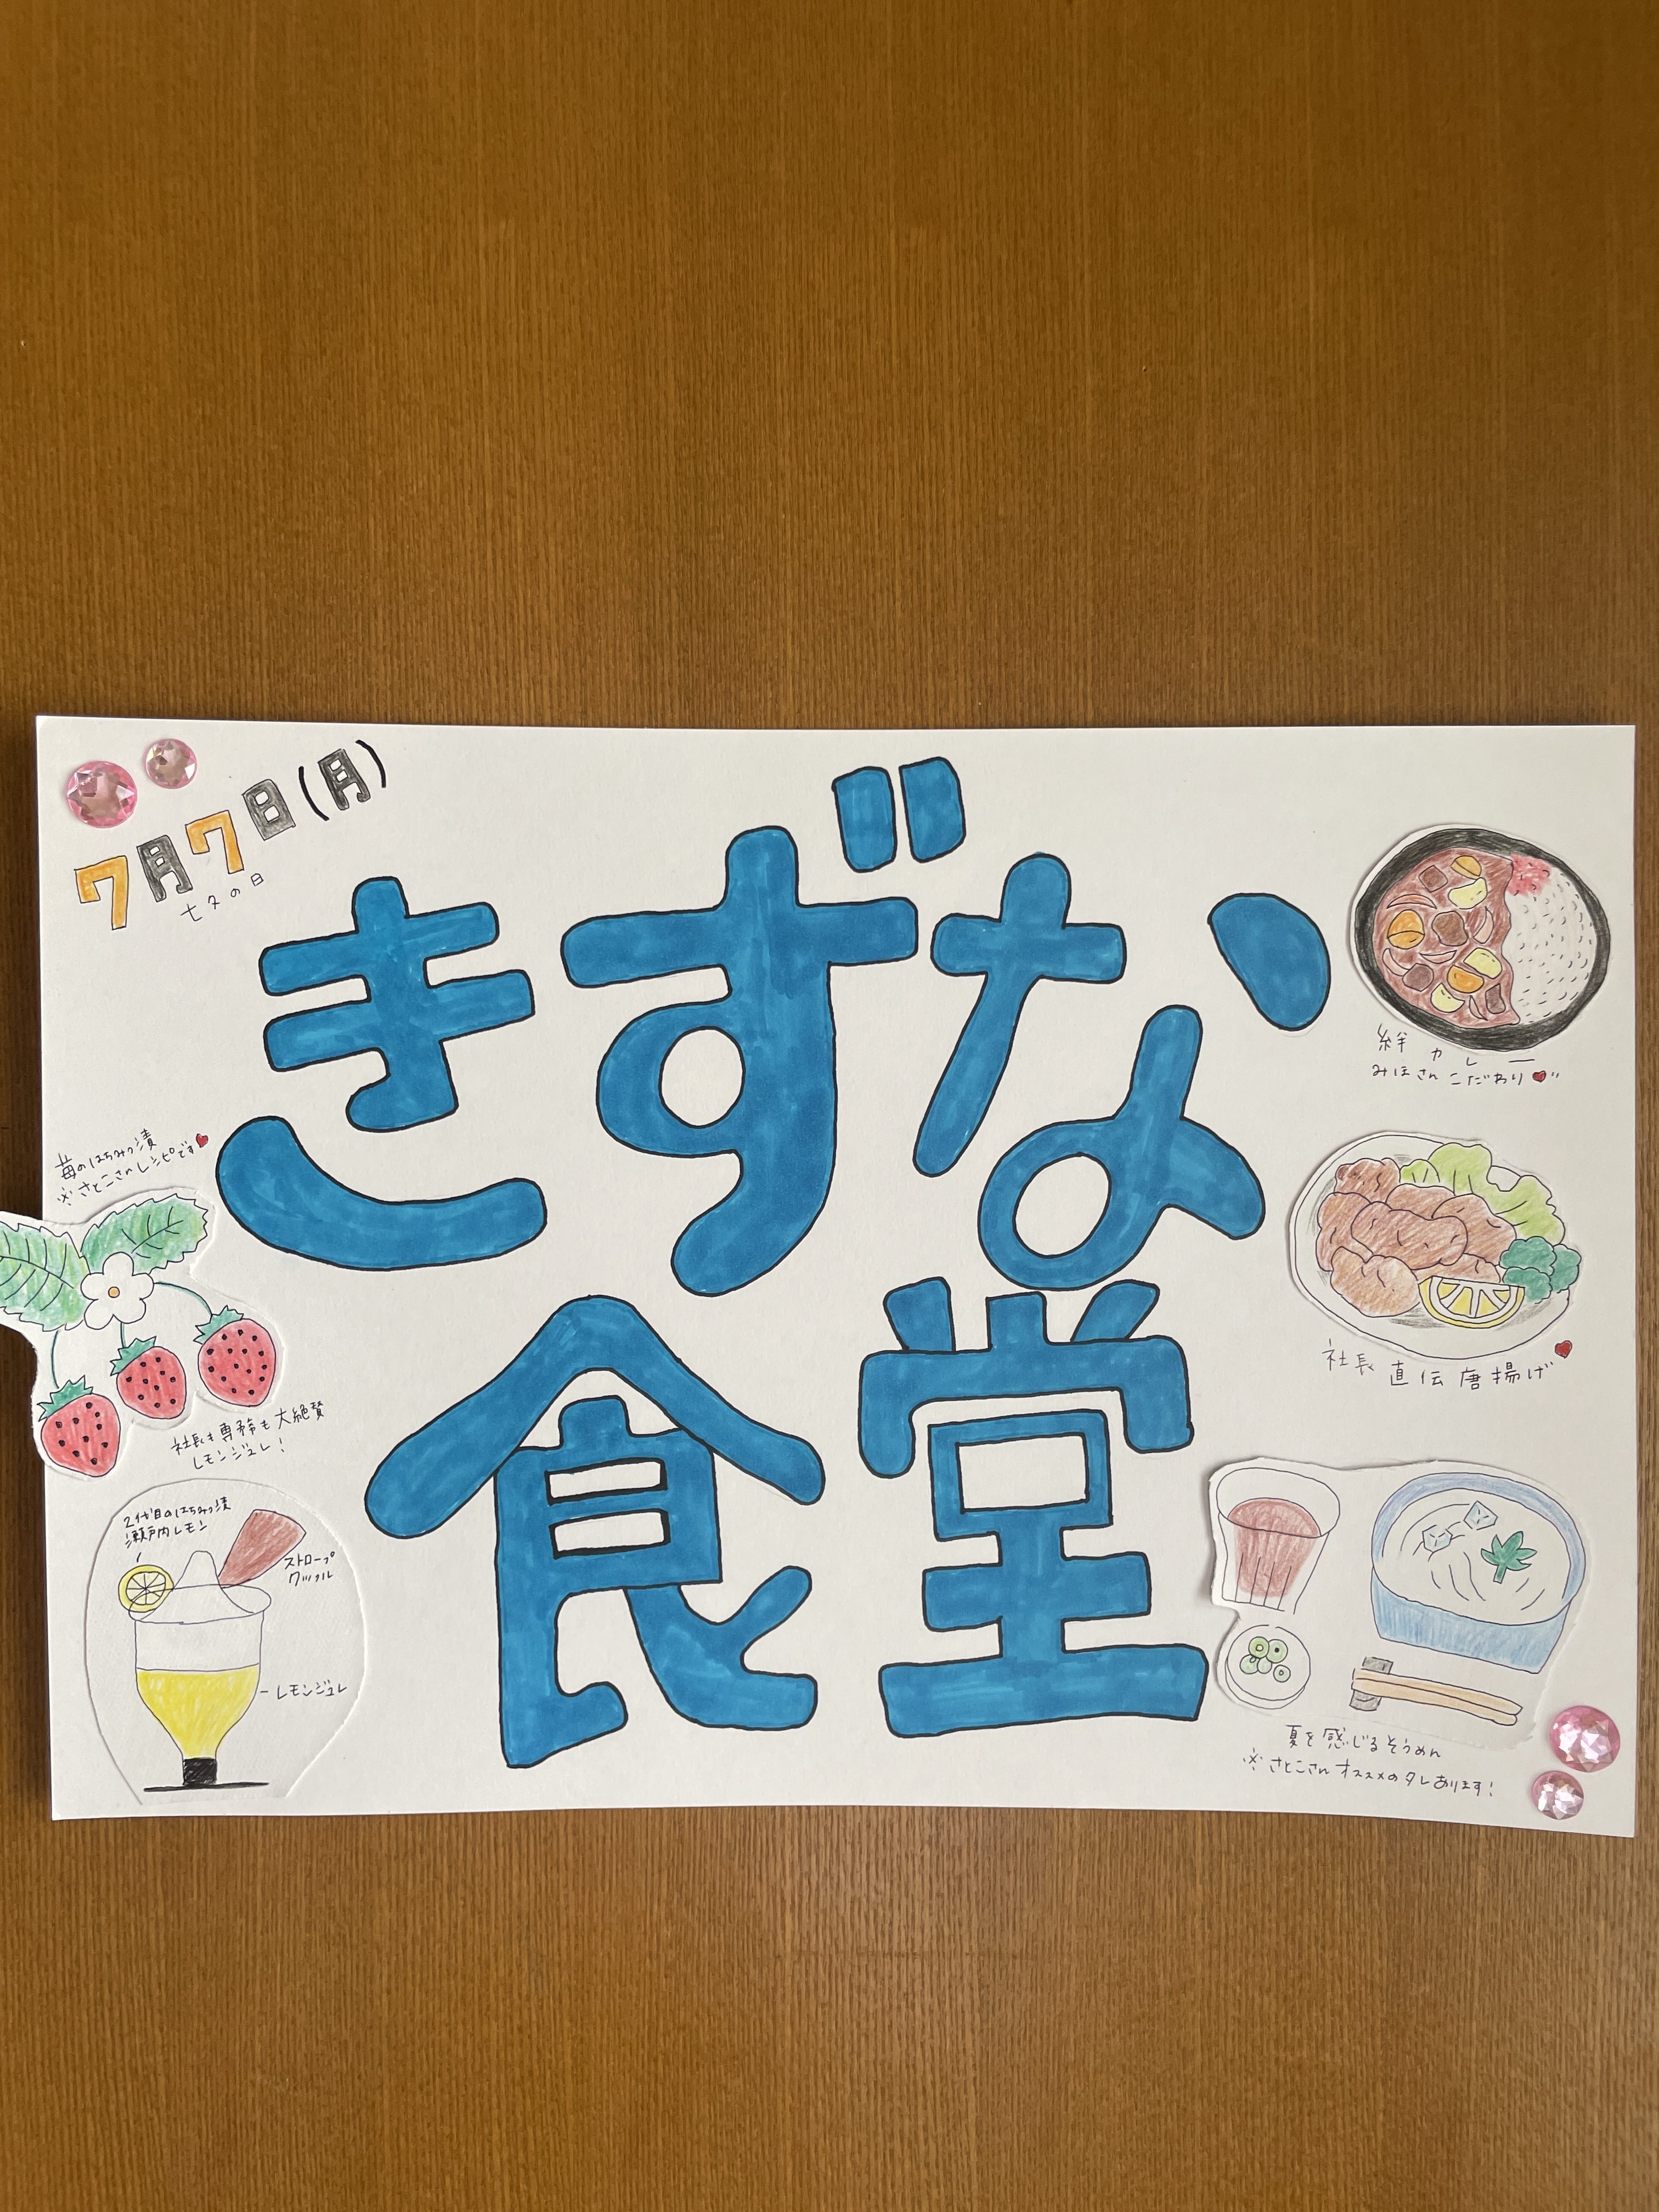 7月7日(月)
七夕の日
きずな
食堂
絆カレー
みほさんこだわり
社長直伝唐揚げ
苺のはちみつ漬
※さとこさんレシピです
社長も専務も大絶賛
レモンジュレ!
2代目のはちみつ漬
瀬戸内レモン
ストロープ
ワッフル
レモンジュレ
夏を感じるそうめん
※さとこさんオススメのタレあります!